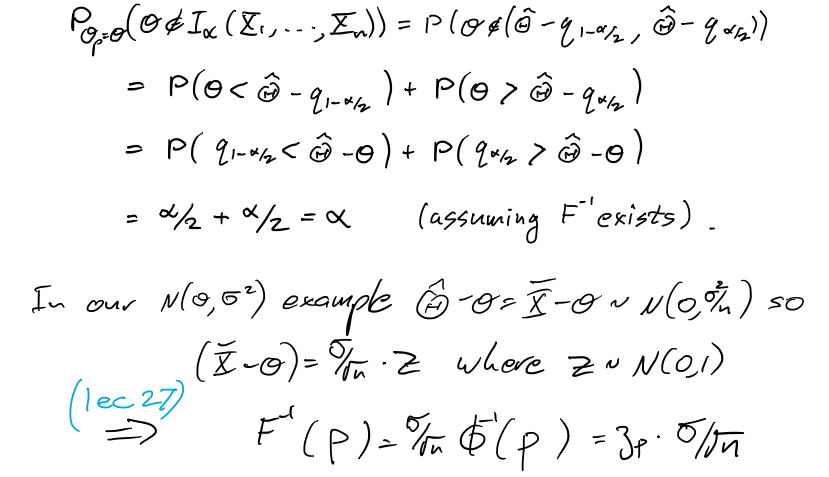 P_{Θ_P=θ}(θ ∉ I_α(X_1, ..., X_n)) = P(θ ∉ (Θ̂ - q_{1-α/2}, Θ̂ - q_{α/2}))
= P(θ < Θ̂ - q_{1-α/2}) + P(θ > Θ̂ - q_{α/2})
= P(q_{1-α/2} < Θ̂ - θ) + P(q_{α/2} > Θ̂ - θ)
= α/2 + α/2 = α (assuming F^{-1} exists).
In our N(θ, σ²) example Θ̂ - θ = X̄ - θ ~ N(0, σ²/n) so
(X̄ - θ) = σ/√n · Z where Z ~ N(0,1)
(lec 27)
⟹ F^{-1}(p) = σ/√n Φ^{-1}(p) = z_p · σ/√n